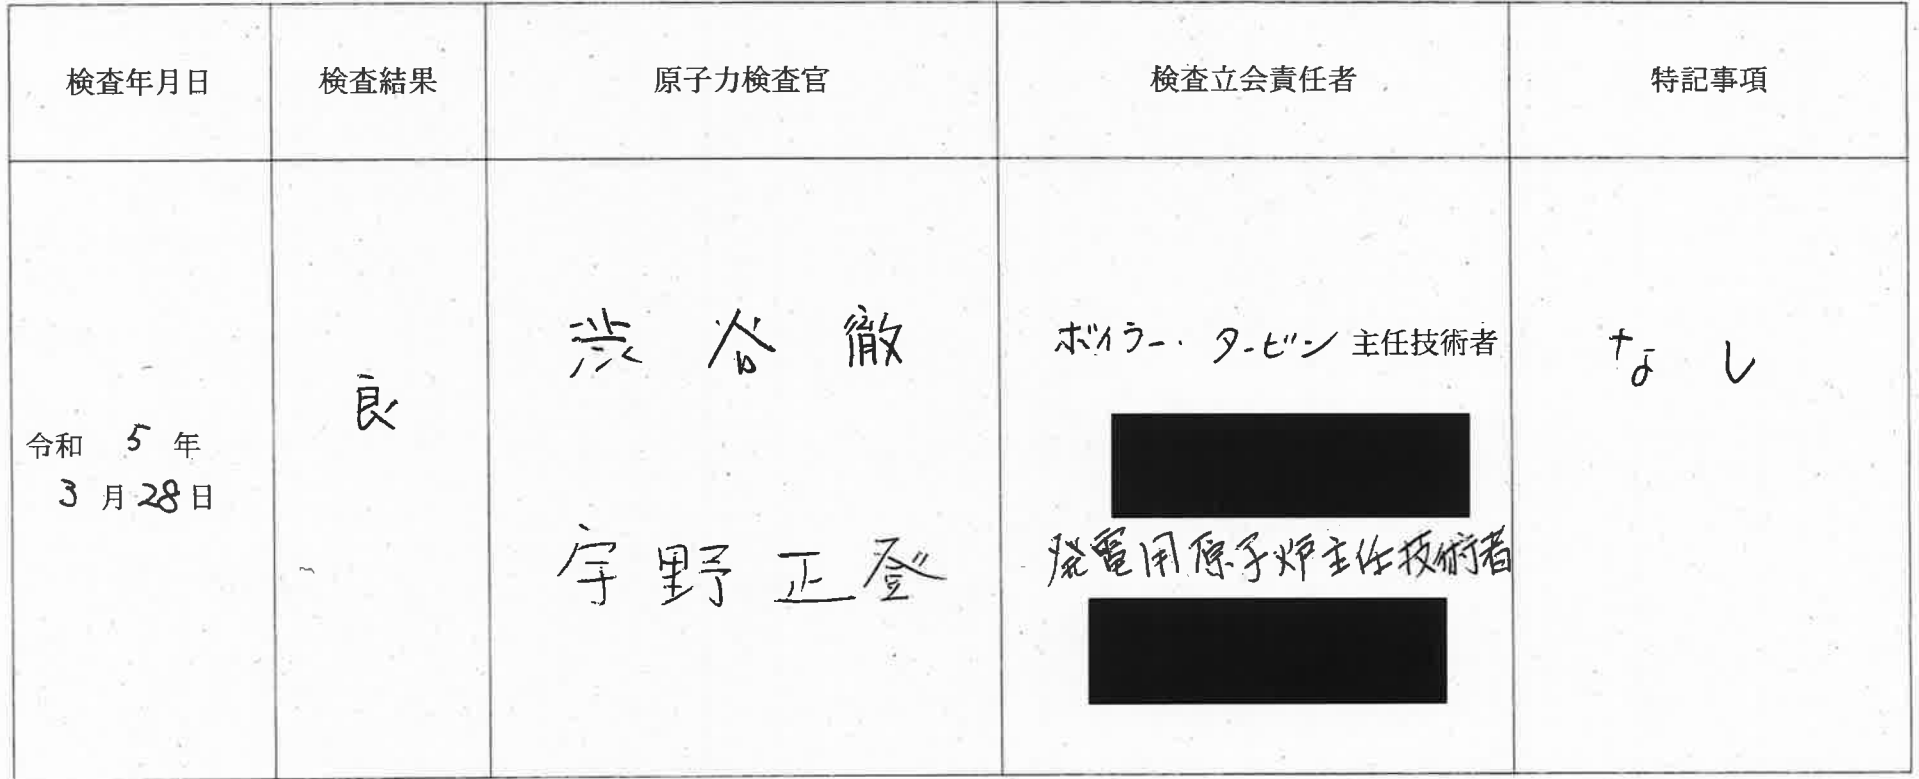 検査年月日 検査結果 原子力検査官 検査立会責任者 特記事項
令和 5 年
3 月 28 日
良
渋谷徹
宇野正登
ボイラー・タービン 主任技術者
発電用原子炉主任技術者
なし